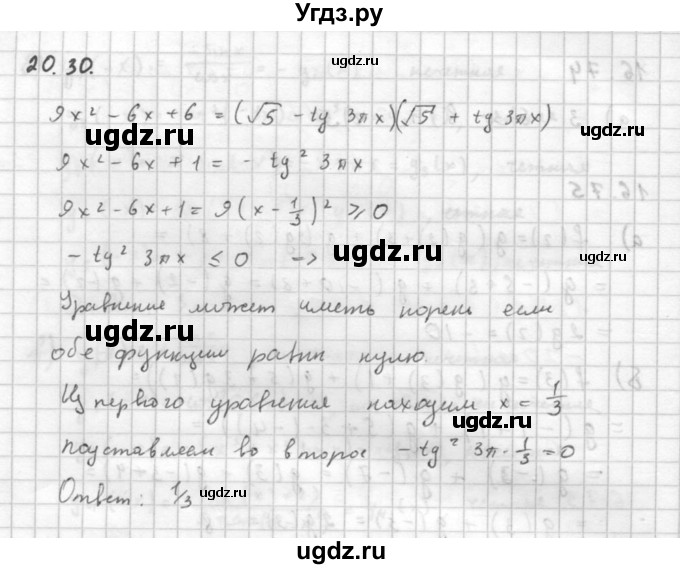 Угдз.ру
20.30.
ugdz.ru
9x² - 6x + 6 = (√5 - tg 3πx)(√5 + tg 3πx)
ugdz.ru ugdz.ru
9x² - 6x + 1 = - tg² 3πx
ugdz.ru
9x² - 6x + 1 = 9(x - 1/3)² ⩾ 0
- tg² 3πx ≤ 0 ->
ugdz.ru
Уравнение может иметь корень если
ugdz.ru ugdz.ru
обе функции равны нулю.
Из первого уравнения находим x = 1/3
ugdz.ru
подставляем во второе - tg² 3π · 1/3 = 0
Ответ: 1/3
ugdz.ru
ugdz.ru